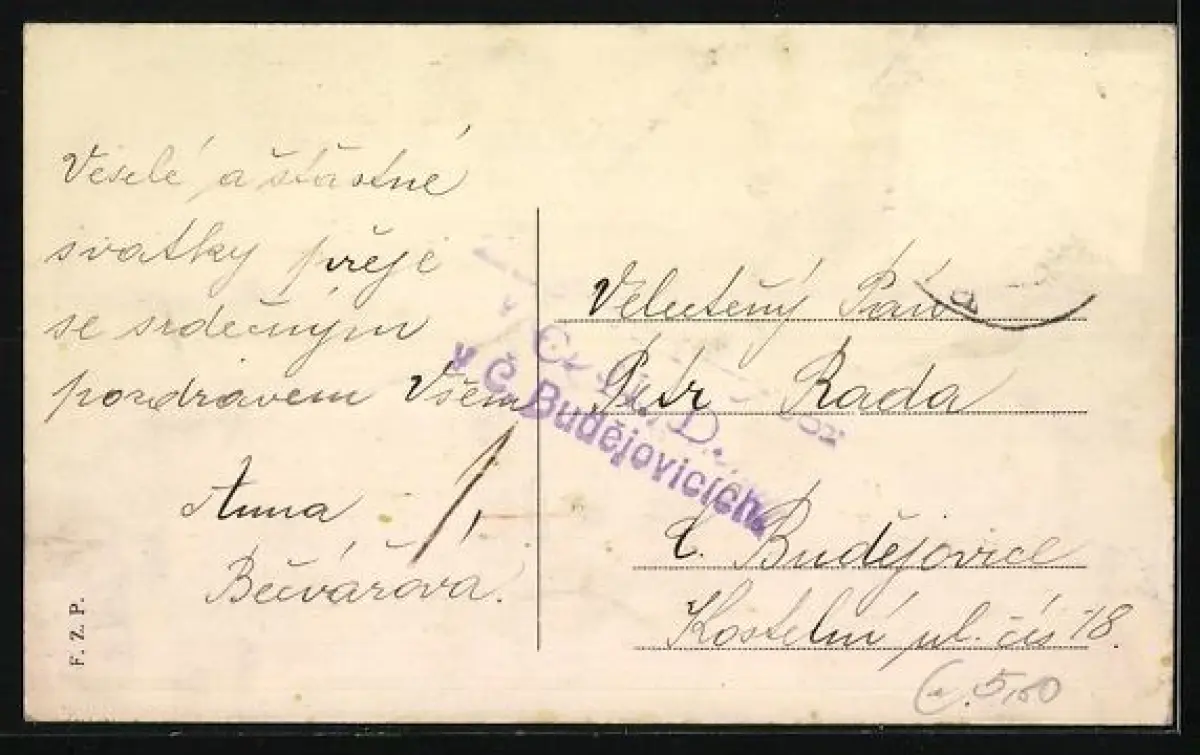 Veselé a šťastné
svátky přeje
se srdečným
pozdravem Všem
Anna
Bečvářová.
F. Z. P.
Velectěný Pán
Petr Rada
Č. Budějovice
Kostelní ul. čís 18.
v Č. Budějovicích.
5,60